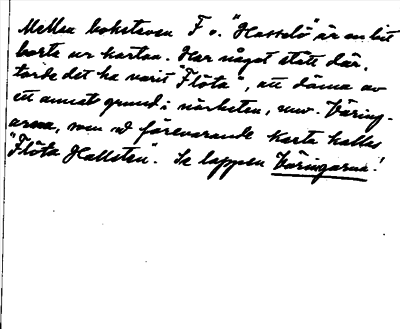 Mellan bokstaven F o. "Hasselö" är en bit
borta ur kartan. Har något stått där,
torde det ha varit "Flöta", att döma av
ett annat grund i närheten, nuv. Väring-
arna, som å förevarande karta kallas
"Flöta Hallsten". Se lappen Väringarna!